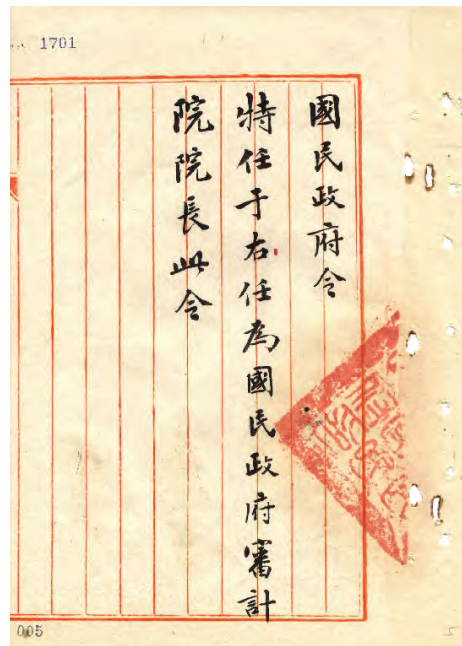 1701
國民政府令
特任于右任為國民政府審計
院院長此令
005
5